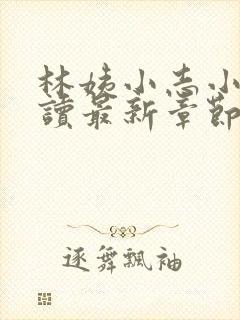 林姨小志小
讀最新章節
逐舞飄袖